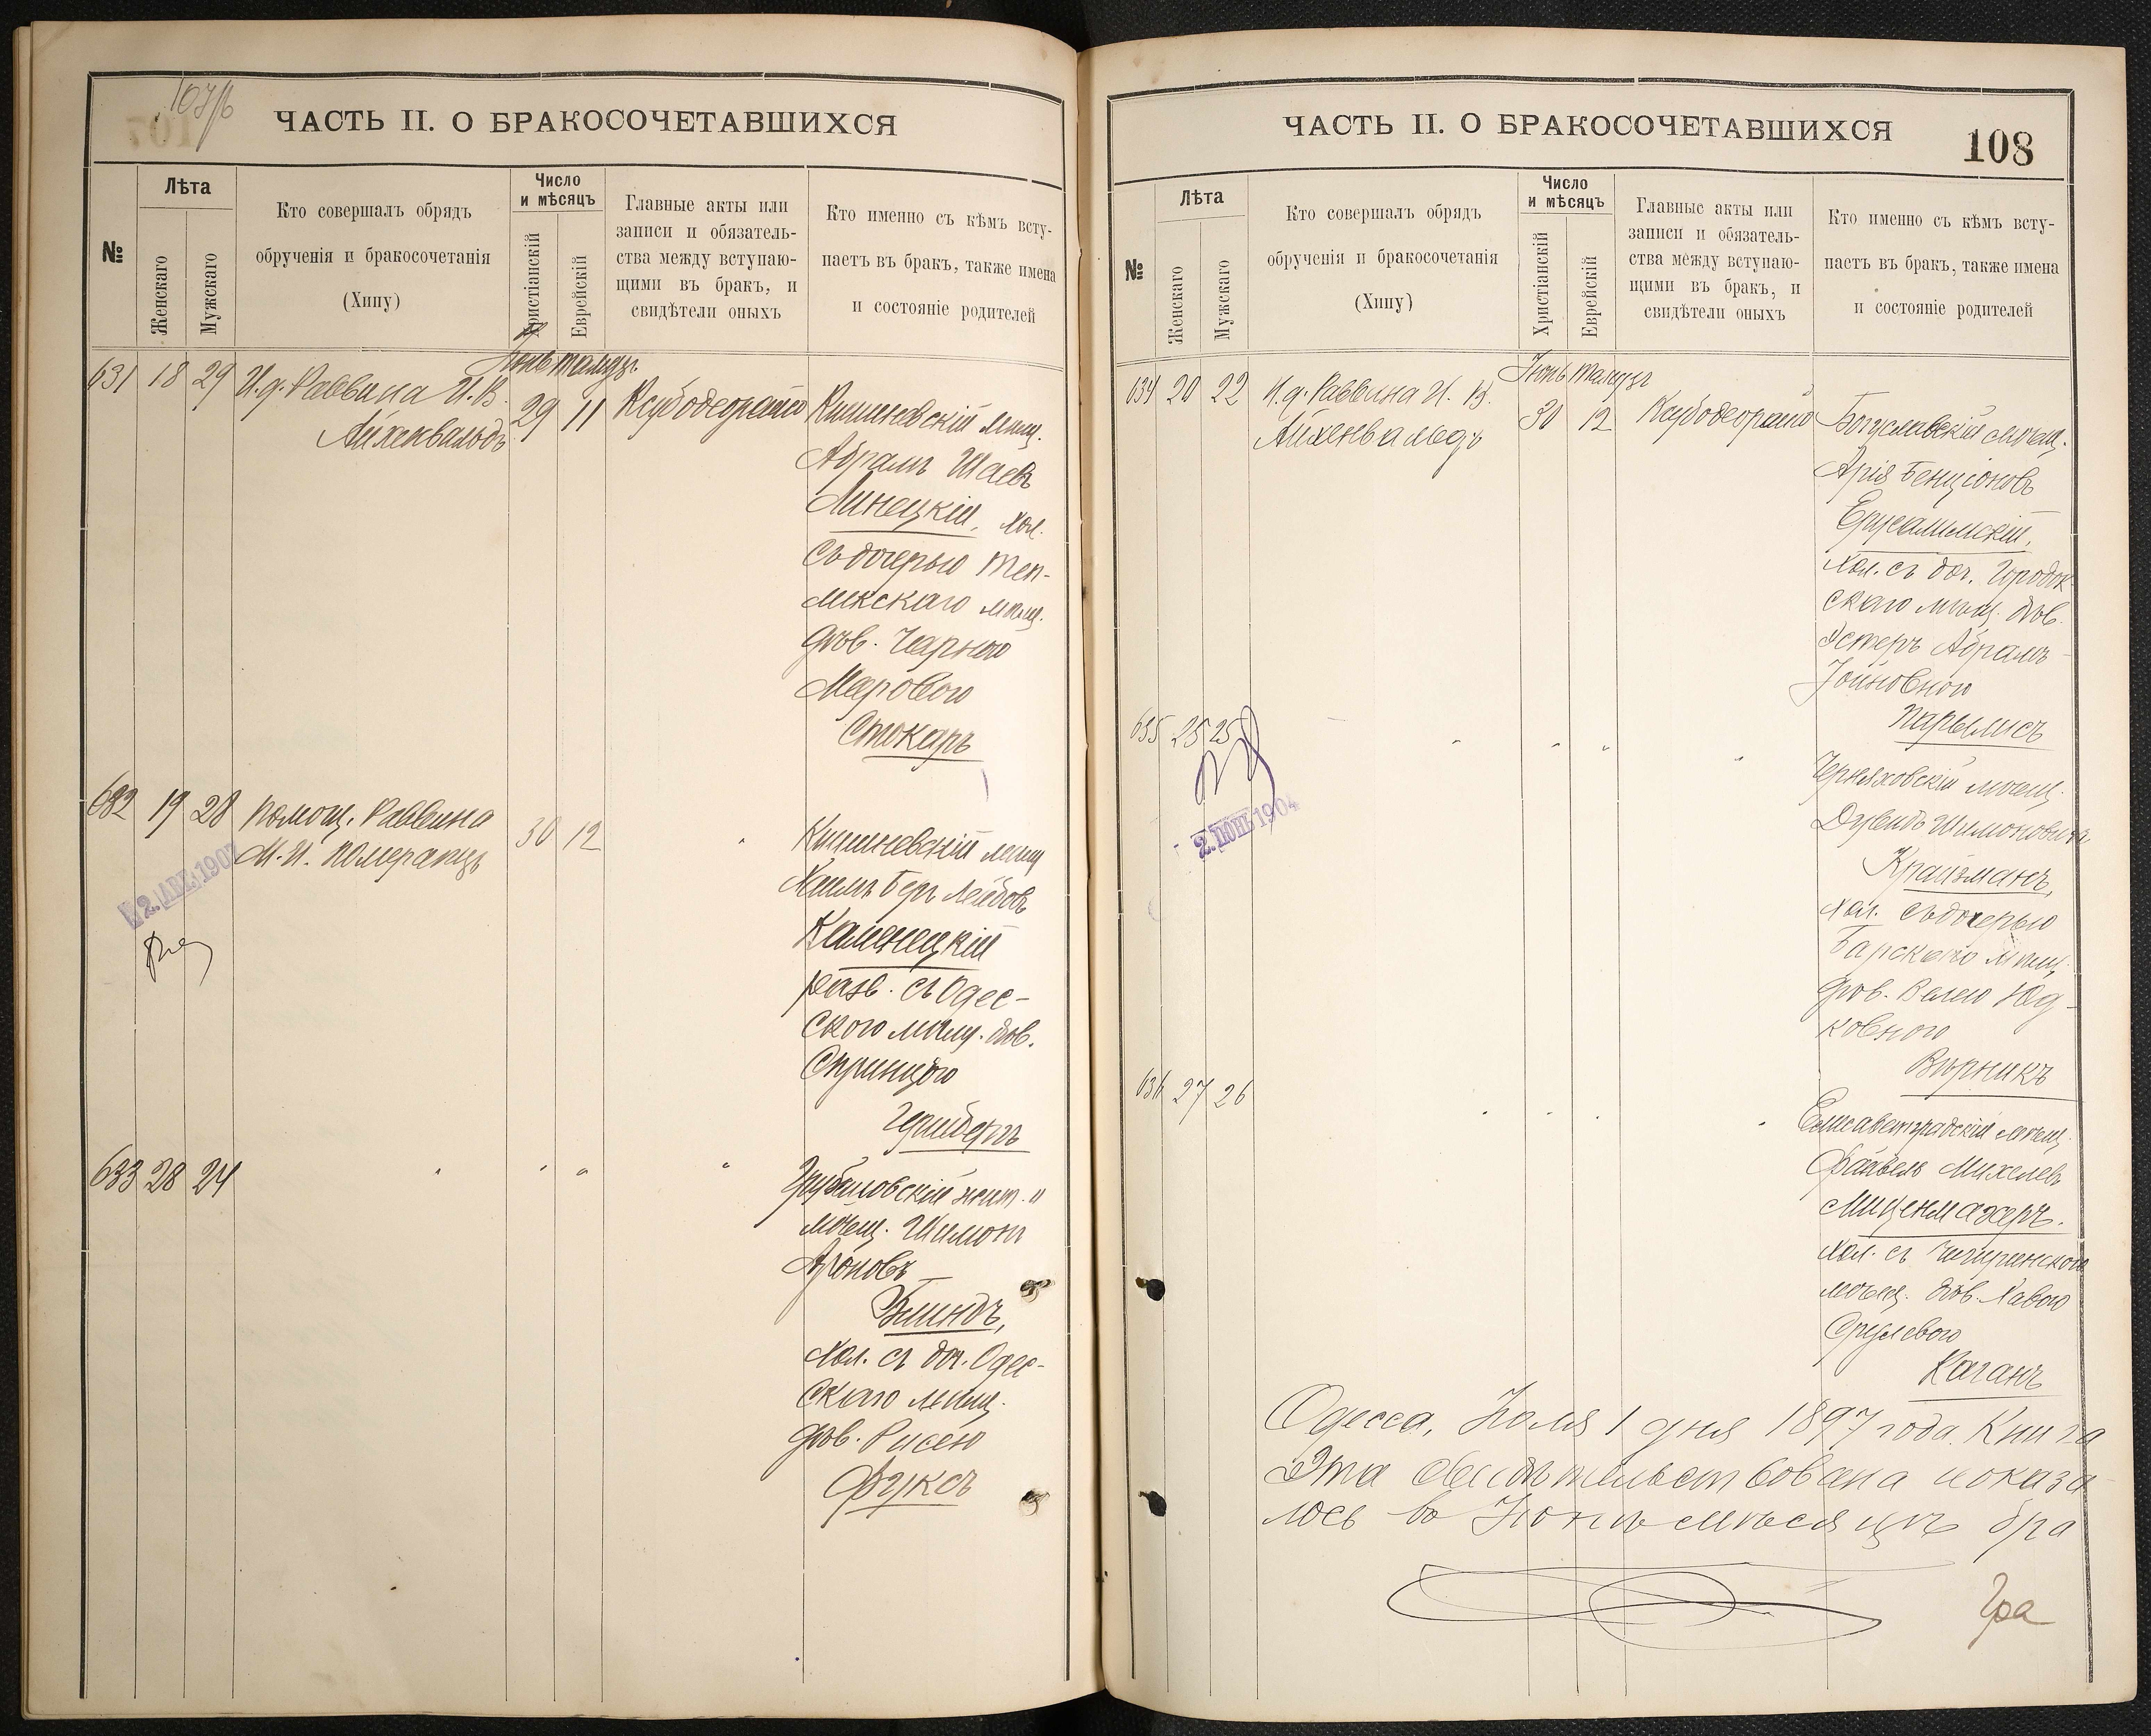 107/б
ЧАСТЬ II. О БРАКОСОЧЕТАВШИХСЯ
№
Лѣта
Женскаго
Мужскаго
Кто совершалъ обрядъ
обрученія и бракосочетанія
(Хипу)
Число
и мѣсяцъ
Христіанскій
Еврейскій
Главные акты или
записи и обязатель-
ства между вступаю-
щими въ бракъ, и
свидѣтели оныхъ
Кто именно съ кѣмъ всту-
паетъ въ бракъ, также имена
и состояніе родителей
Іюнь тамузъ
631 18 29 И.д. Раввина И. В.
Айхенвальдъ
29 11
Ксубодеорайсо
Кишиневскій мѣщ.
Абрамъ Шаевъ
Линецкій, хол.
съ дочерью Теп-
ликскаго мѣщ.
дѣв. Чарною
Меровою
Стокаръ
632 19 28 Помощ. Раввина
М. И. Померанцъ
30 12 "
Кишиневскій мѣщ
Хаимъ Беръ Лейбовъ
Каменецкій
разв. съ Одес-
скою мѣщ. дѣв.
Спринцою
Гринбергъ
2. АВГ. 1907
633 28 24 " " " "
мѣщ. Шимонъ
Ароновъ
Блиндъ,
хол. съ доч. Одес-
скаго мѣщ.
дѣв. Рисею
Фуксъ
ЧАСТЬ II. О БРАКОСОЧЕТАВШИХСЯ
108
№
Лѣта
Женскаго
Мужскаго
Кто совершалъ обрядъ
обрученія и бракосочетанія
(Хипу)
Число
и мѣсяцъ
Христіанскій
Еврейскій
Главные акты или
записи и обязатель-
ства между вступаю-
щими въ бракъ, и
свидѣтели оныхъ
Кто именно съ кѣмъ всту-
паетъ въ бракъ, также имена
и состояніе родителей
Іюнь тамузъ
634 20 22 И.д. Раввина И. В.
Айхенвальдъ
30 12
Ксубодеорайсо
Богуславскій мѣщ.
Арія Бенціоновъ
Ерусалимскій,
хол. съ доч. Городок
скаго мѣщ. дѣв.
Эстеръ Абрамъ-
Іойновною
Парылисъ
635 25 25 " " " "
2. ІЮН. 1904
Черняховскій мѣщ.
Дувидъ Шимоновичъ
Крайзманъ,
хол. съ дочерью
Барскаго мѣщ.
дѣв. Велею Юд-
ковною
Вѣрникъ
636 27 26 " " " "
Елисаветградскій мѣщ.
Файвель Михелевъ
Миценмахеръ.
хол. съ Чигиринскою
мѣщ. дѣв. Хавою
Срулевою
Каганъ
Одесса, Іюля 1 дня 1897 года. Книга
Эта свидѣтельствована и оказа
лось въ Іюнѣ мѣсяцѣ бра